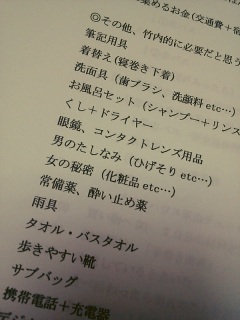 集めるお金(交通費＋宿
◎その他、竹内的に必要だと思う
筆記用具
着替え(寝巻き下着)
洗面具(歯ブラシ、洗顔料etc…)
お風呂セット(シャンプー＋リンス
くし＋ドライヤー
眼鏡、コンタクトレンズ用品
男のたしなみ(ひげそりetc…)
女の秘密(化粧品etc…)
常備薬、酔い止め薬
雨具
タオル・バスタオル
歩きやすい靴
サブバッグ
携帯電話＋充電器
デジ